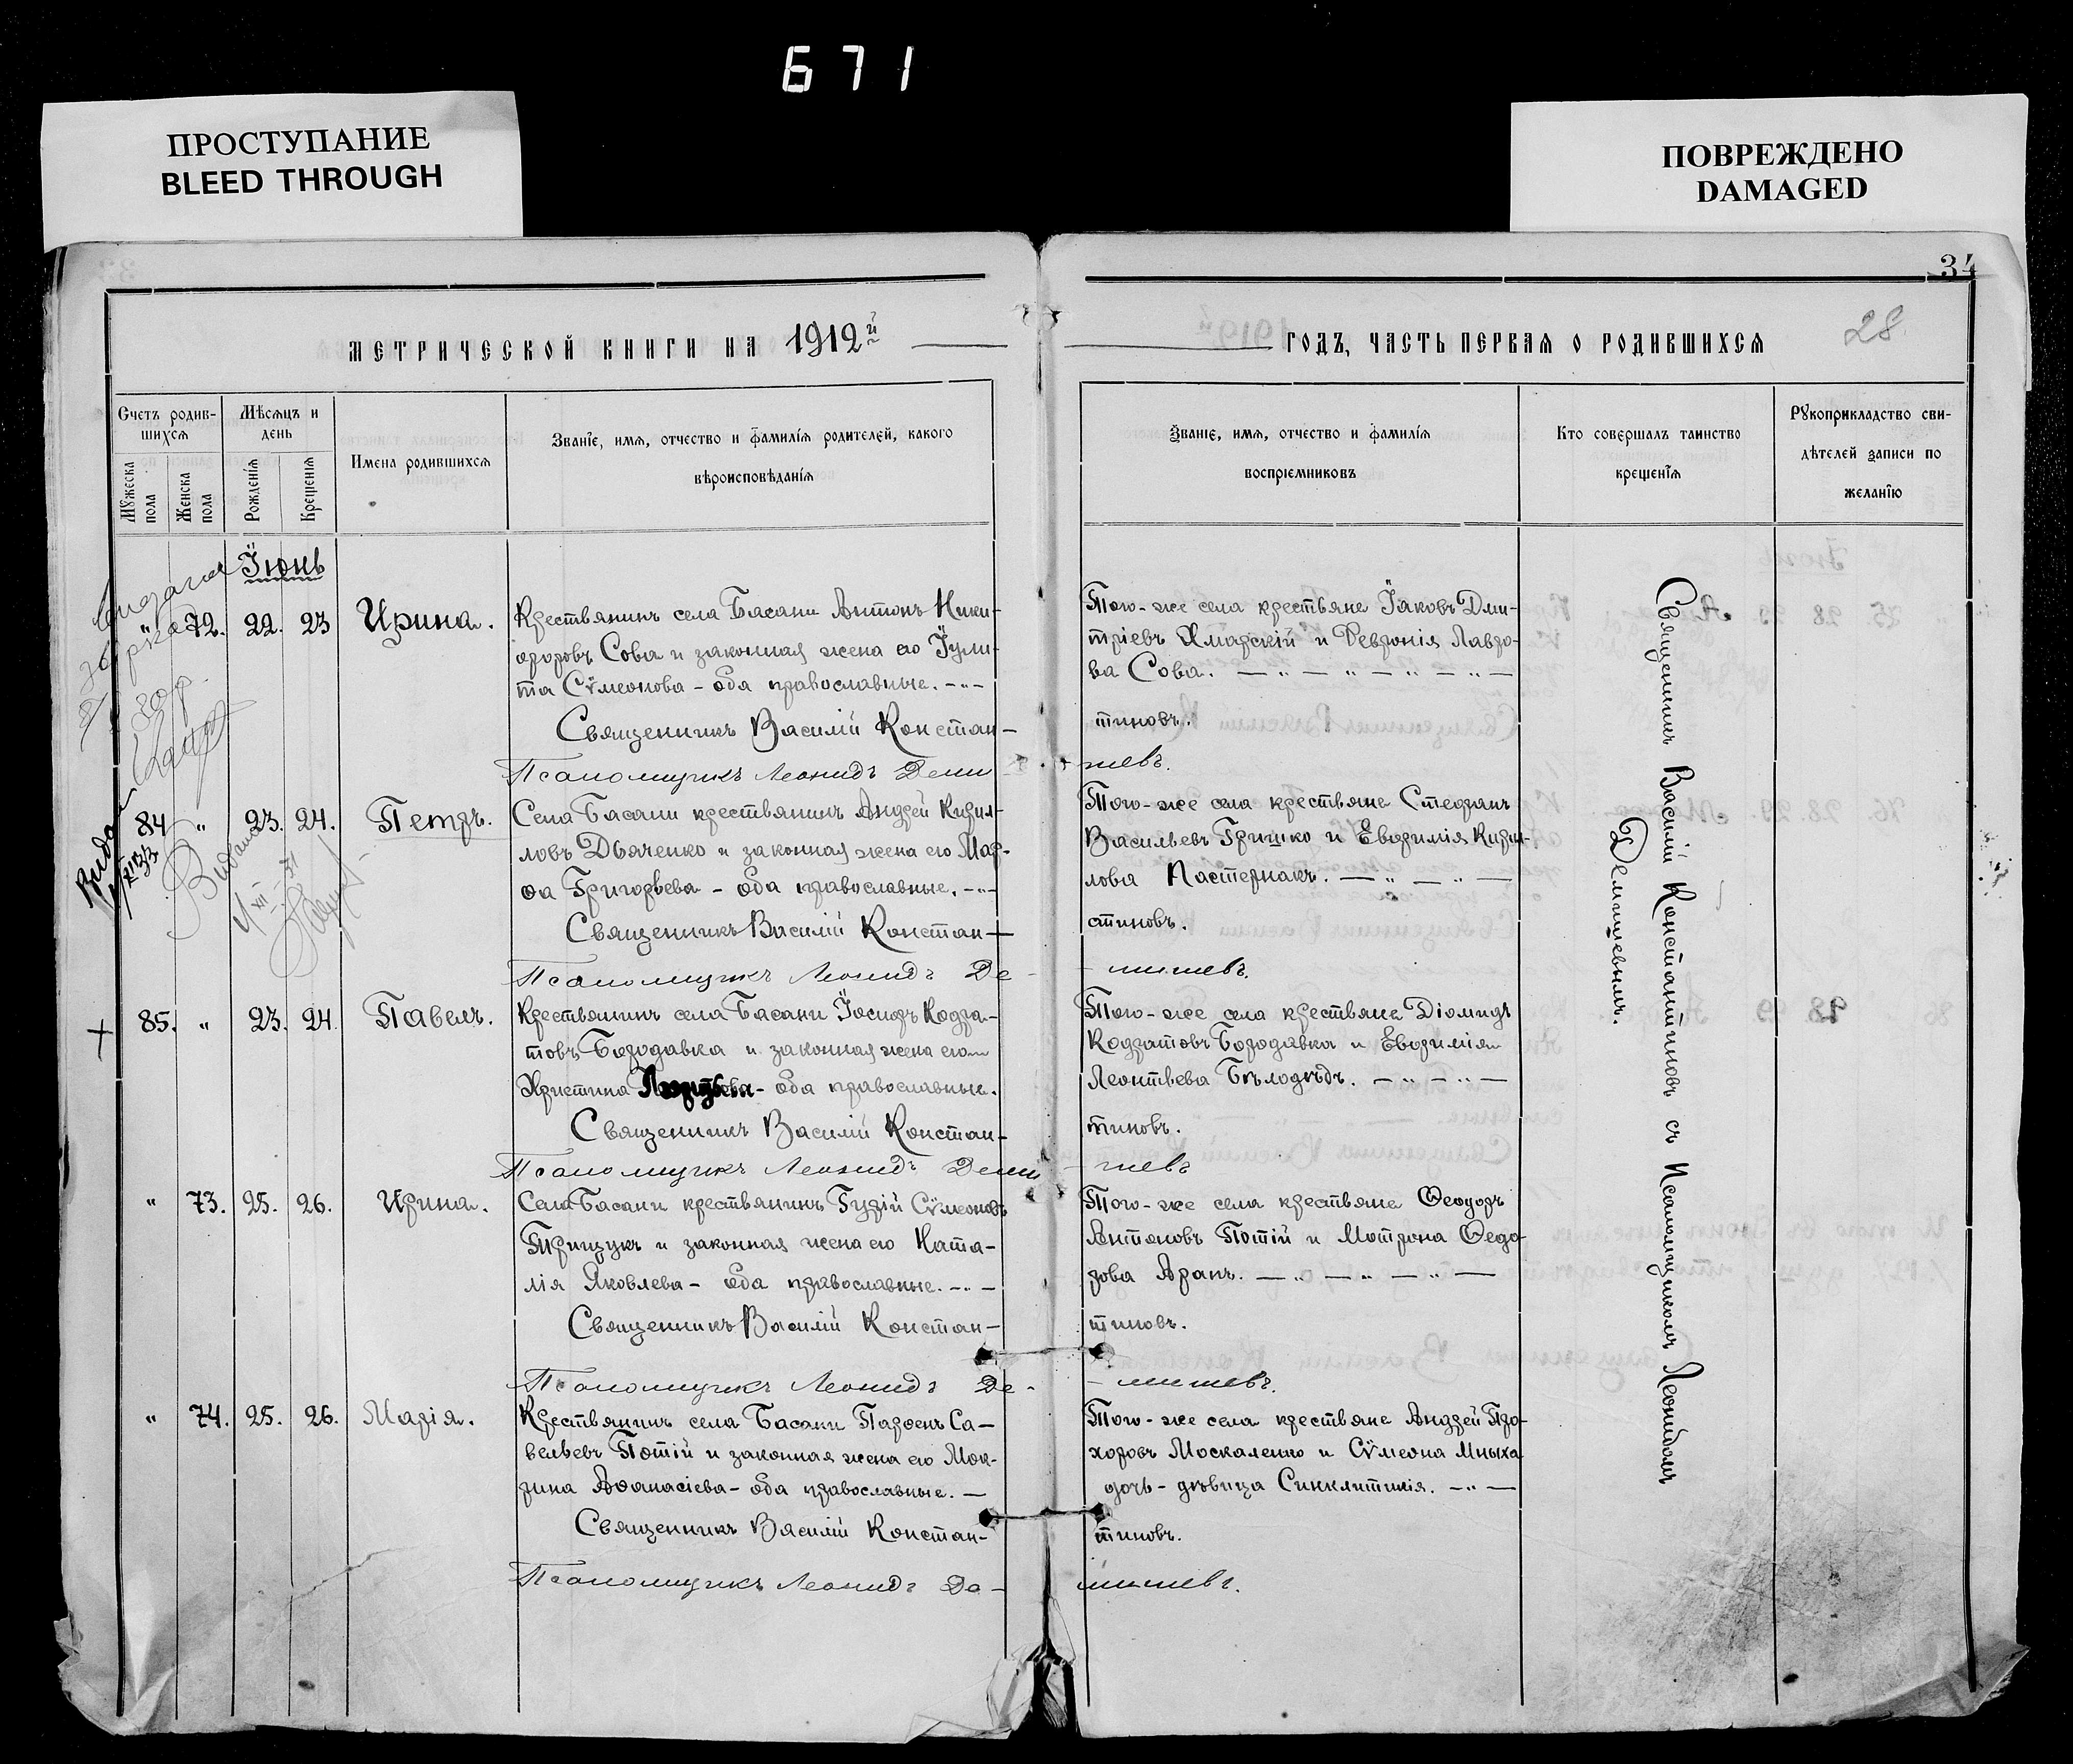 671
ПРОСТУПАНИЕ
BLEED THROUGH
ПОВРЕЖДЕНО
DAMAGED
34
28
МЕТРИЧЕСКОЙ КНИГИ НА 1912й
ГОДЪ, ЧАСТЬ ПЕРВАЯ О РОДИВШИХСЯ
Счетъ родив-
шихся
Мужеска пола
Женска пола
Мѣсяцъ и
день
Рожденія
Крещенія
Имена родившихся
Званіе, имя, отчество и фамилія родителей, какого
вѣроисповѣданія
Званіе, имя, отчество и фамилія
воспріемниковъ
Кто совершалъ таинство
крещенія
Рукоприкладство сви-
дѣтелей записи по
желанію
Іюнь
" 72. 22. 23 Ирина.
Крестьянинъ села Басани Антонъ Ники-
форовъ Сова и законная жена его Іули-
та Сѵмеонова - оба православные. -"-
Священникъ Василій Констан-
Псаломщикъ Леонидъ Деми-
Того-же села крестьяне Іаковъ Дми-
тріевъ Хмарскій и Февронія Лавро-
ва Сова. - " - " - " - " -
тиновъ.
шевъ.
84 " 23. 24. Петръ.
Села Басани крестьянинъ Андрей Кирил-
ловъ Дьяченко и законная жена его Мар-
ѳа Григорьева - оба православные. -"-
Священникъ Василій Констан-
Псаломщикъ Леонидъ Де-
Того-же села крестьяне Стефанъ
Васильевъ Гришко и Евфимія Кирил-
лова Пастернакъ. - " - " -
стиновъ.
- мишевъ.
85. " 23. 24. Павелъ.
Крестьянинъ села Басани Іосифъ Кодра-
товъ Бородавка и законная жена его
Христина - оба православные.
Священникъ Василій Констан-
Псаломщикъ Леонидъ Деми
Того-же села крестьяне Діомидъ
Кодратовъ Бородавка и Евфимія
Леонтьева Бѣлодѣдъ. - " - " -
тиновъ.
- шевъ
" 73. 25. 26. Ирина.
Села Басани крестьянинъ Гурій Сѵмеоновъ
Грищукъ и законная жена его Ната-
лія Яковлева - оба православные. -"-
Священникъ Василій Констан-
Псаломщикъ Леонидъ Де-
Того-же села крестьяне Ѳеодоръ
Антоновъ Потій и Мотрона Ѳедо-
рова Арапъ. - " - " - " -
тиновъ.
- мишевъ.
" 74. 25. 26. Марія.
Крестьянинъ села Басани Парѳенъ Са-
вельевъ Потій и законная жена его Мок-
рина Аѳанасіева - оба православные. -
Священникъ Василій Констан-
Псаломщикъ Леонидъ Де-
Того-же села крестьяне Андрей Про-
хоровъ Москаленко и Сѵмеона Мныха
дочь - дѣвица Синклитикія. -"-
тиновъ.
мишевъ.
Священникъ Василій Константиновъ съ Псаломщикомъ Леонидомъ
Демишевымъ.